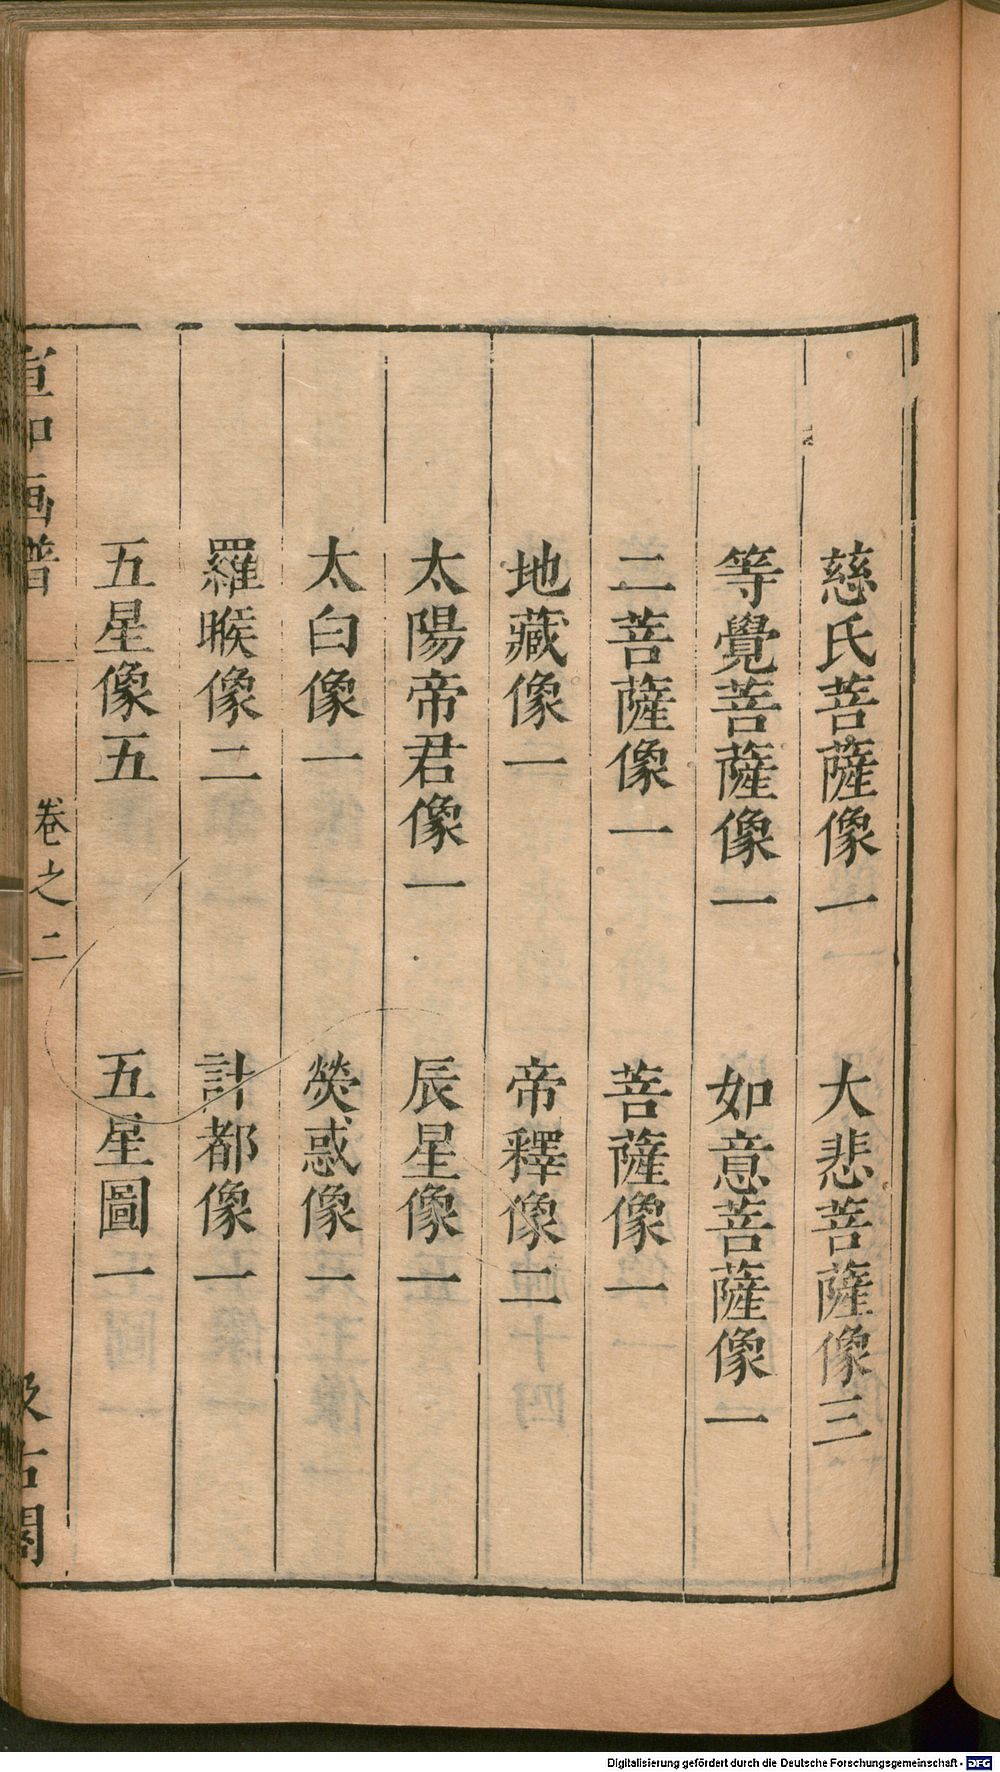 慈氏菩薩像一　大悲菩薩像三
等覺菩薩像一　如意菩薩像一
二菩薩像一　菩薩像一
地藏像一　帝釋像二
太陽帝君像一　辰星像一
太白像一　熒惑像一
羅睺像二　計都像一
五星像五　五星圖一
宣和画譜　卷之二　汲古閣
Digitalisierung gefördert durch die Deutsche Forschungsgemeinschaft - DFG